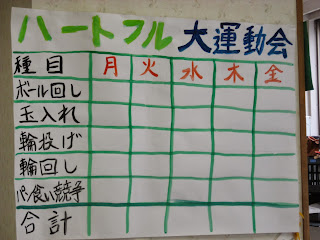 ハートフル 大運動会
種目 月 火 水 木 金
ボール回し
玉入れ
輪投げ
輪回し
パン食い競争
合計